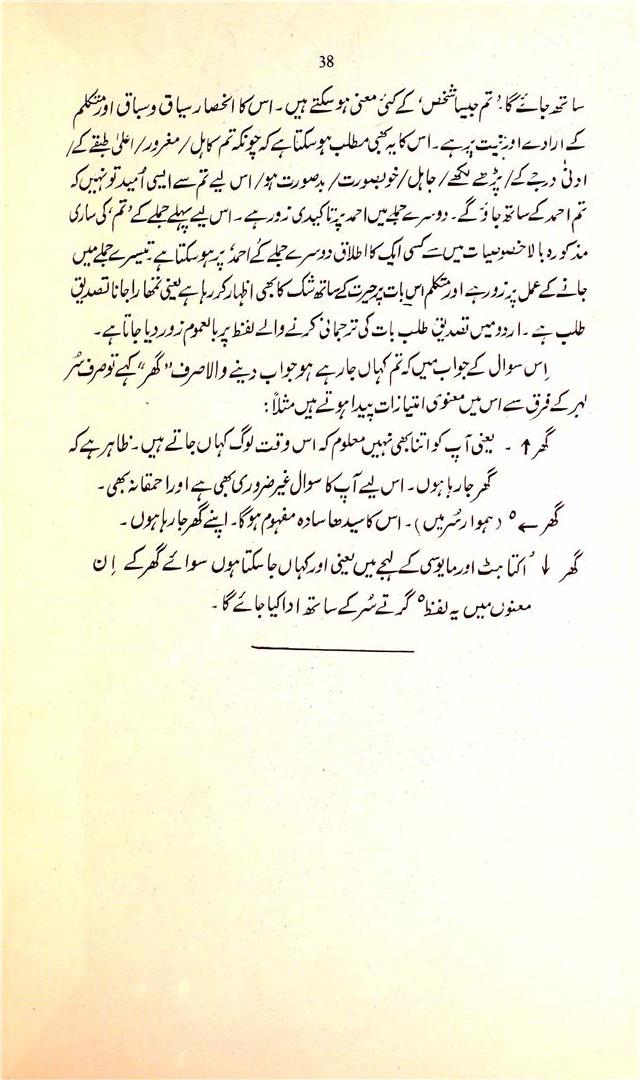 38
ساتھ جائے گا۔ ’تم جیسا شخص‘ کے کئی معنی ہو سکتے ہیں۔ اس کا انحصار سیاق و سباق اور متکلم
کے ارادے اور نیت پر ہے۔ اس کا یہ بھی مطلب ہو سکتا ہے کہ چونکہ تم کاہل/ مغرور/ اعلیٰ طبقے کے/
ادنیٰ درجے کے/ پڑھے لکھے/ جاہل/ خوبصورت/ بدصورت ہو/ اس لیے تم سے ایسی اُمید تو نہیں کہ
تم احمد کے ساتھ جاؤ گے۔ دوسرے جملے میں احمد پر تاکیدی زور ہے۔ اس لیے پہلے جملے کے ’تم‘ کی ساری
مذکورہ بالا خصوصیات میں سے کسی ایک کا اطلاق دوسرے جملے کے ’احمد‘ پر ہو سکتا ہے۔ تیسرے جملے میں
جانے کے عمل پر زور ہے اور متکلم اس بات پر حیرت کے ساتھ شک کا بھی اظہار کر رہا ہے یعنی تمھارا جانا تصدیق
طلب ہے۔ اردو میں تصدیق طلب بات کی ترجمانی کرنے والے لفظ پر بالعموم زور دیا جاتا ہے۔
اِس سوال کے جواب میں کہ تم کہاں جا رہے ہو جواب دینے والا صرف ”گھر“ کہے تو صرف سُر
لہر کے فرق سے اس میں معنوی امتیازات پیدا ہوتے ہیں مثلاً:
گھر ↑ ۔ یعنی آپ کو اتنا بھی نہیں معلوم کہ اس وقت لوگ کہاں جاتے ہیں۔ ظاہر ہے کہ
گھر جا رہا ہوں۔ اس لیے آپ کا سوال غیر ضروری بھی ہے اور احمقانہ بھی۔
گھر ←° (ہموار سُر میں)۔ اس کا سیدھا سادہ مفہوم ہوگا۔ اپنے گھر جا رہا ہوں۔
گھر ↓ اُکتاہٹ اور مایوسی کے لہجے میں یعنی اور کہاں جا سکتا ہوں سوائے گھر کے اِن
معنوں میں یہ لفظ° گرتے سُر کے ساتھ ادا کیا جائے گا۔